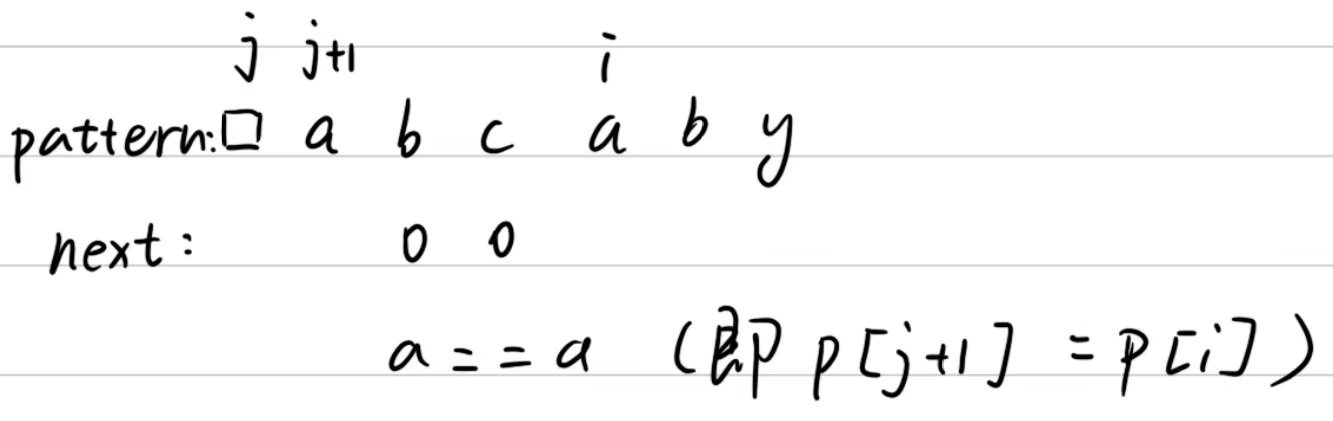 j j+1 i
pattern:□ a b c a b y
next: 0 0
a==a (即 p[j+1] =p[i])